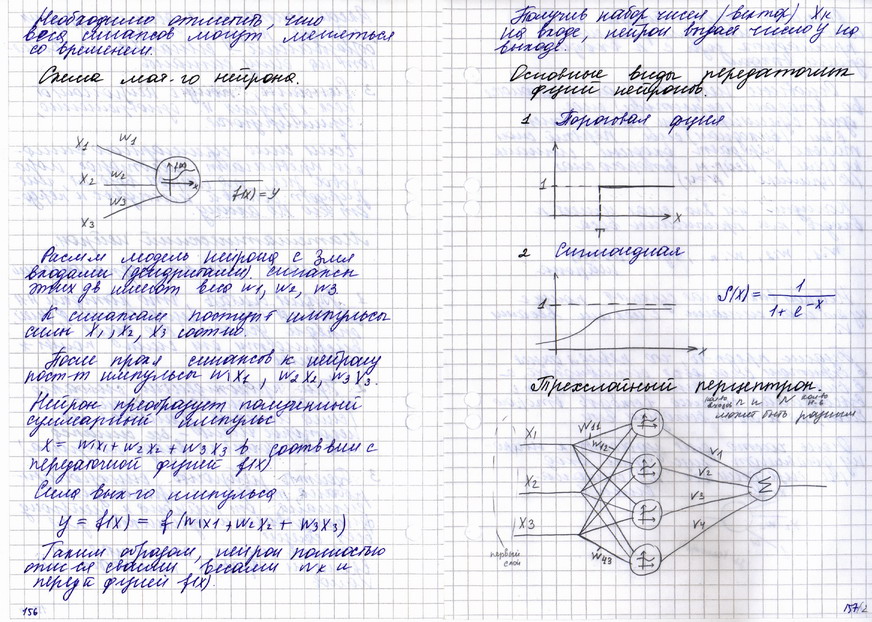 Необходимо отметить, что
веса синапсов могут меняться
со временем.
Схема мат-го нейрона.
x1 w1
x2 w2
x3 w3
f(x)
x
f(x) = y
Рассм модель нейрона с 3мя
входами (дендритами) синапсы
этих дв имеют веса w1, w2, w3
К синапсам поступт импульсы
силы x1, x2, x3 соотно
После прохя синапсов к нейрону
пост-т импульсы w1x1, w2x2, w3x3.
Нейрон преобразует полученный
суммарный импульс
x = w1x1 + w2x2 + w3x3 в соотввии с
передаточной фцией f(x)
Сила вых-го импульса
y = f(x) = f(w1x1 + w2x2 + w3x3)
Таким образом, нейрон полностью
опися своими весами wк и
передт фцией f(x).
156
Получив набор чисел (вектор) xк
на входе, нейрон выдает число y на
выходе.
Основные виды передаточных
фции нейронов.
1 Пороговая фция
1
T
x
2 Сигмоидная
1
x
S(x) = 1 / 1 + e^-x
Трехслойный перцептрон.
кол-во входов n и N кол-во н-в
может быть разным
x1
x2
x3
w11
w12
w43
v1
v2
v3
v4
Σ
первый
слой
157/2